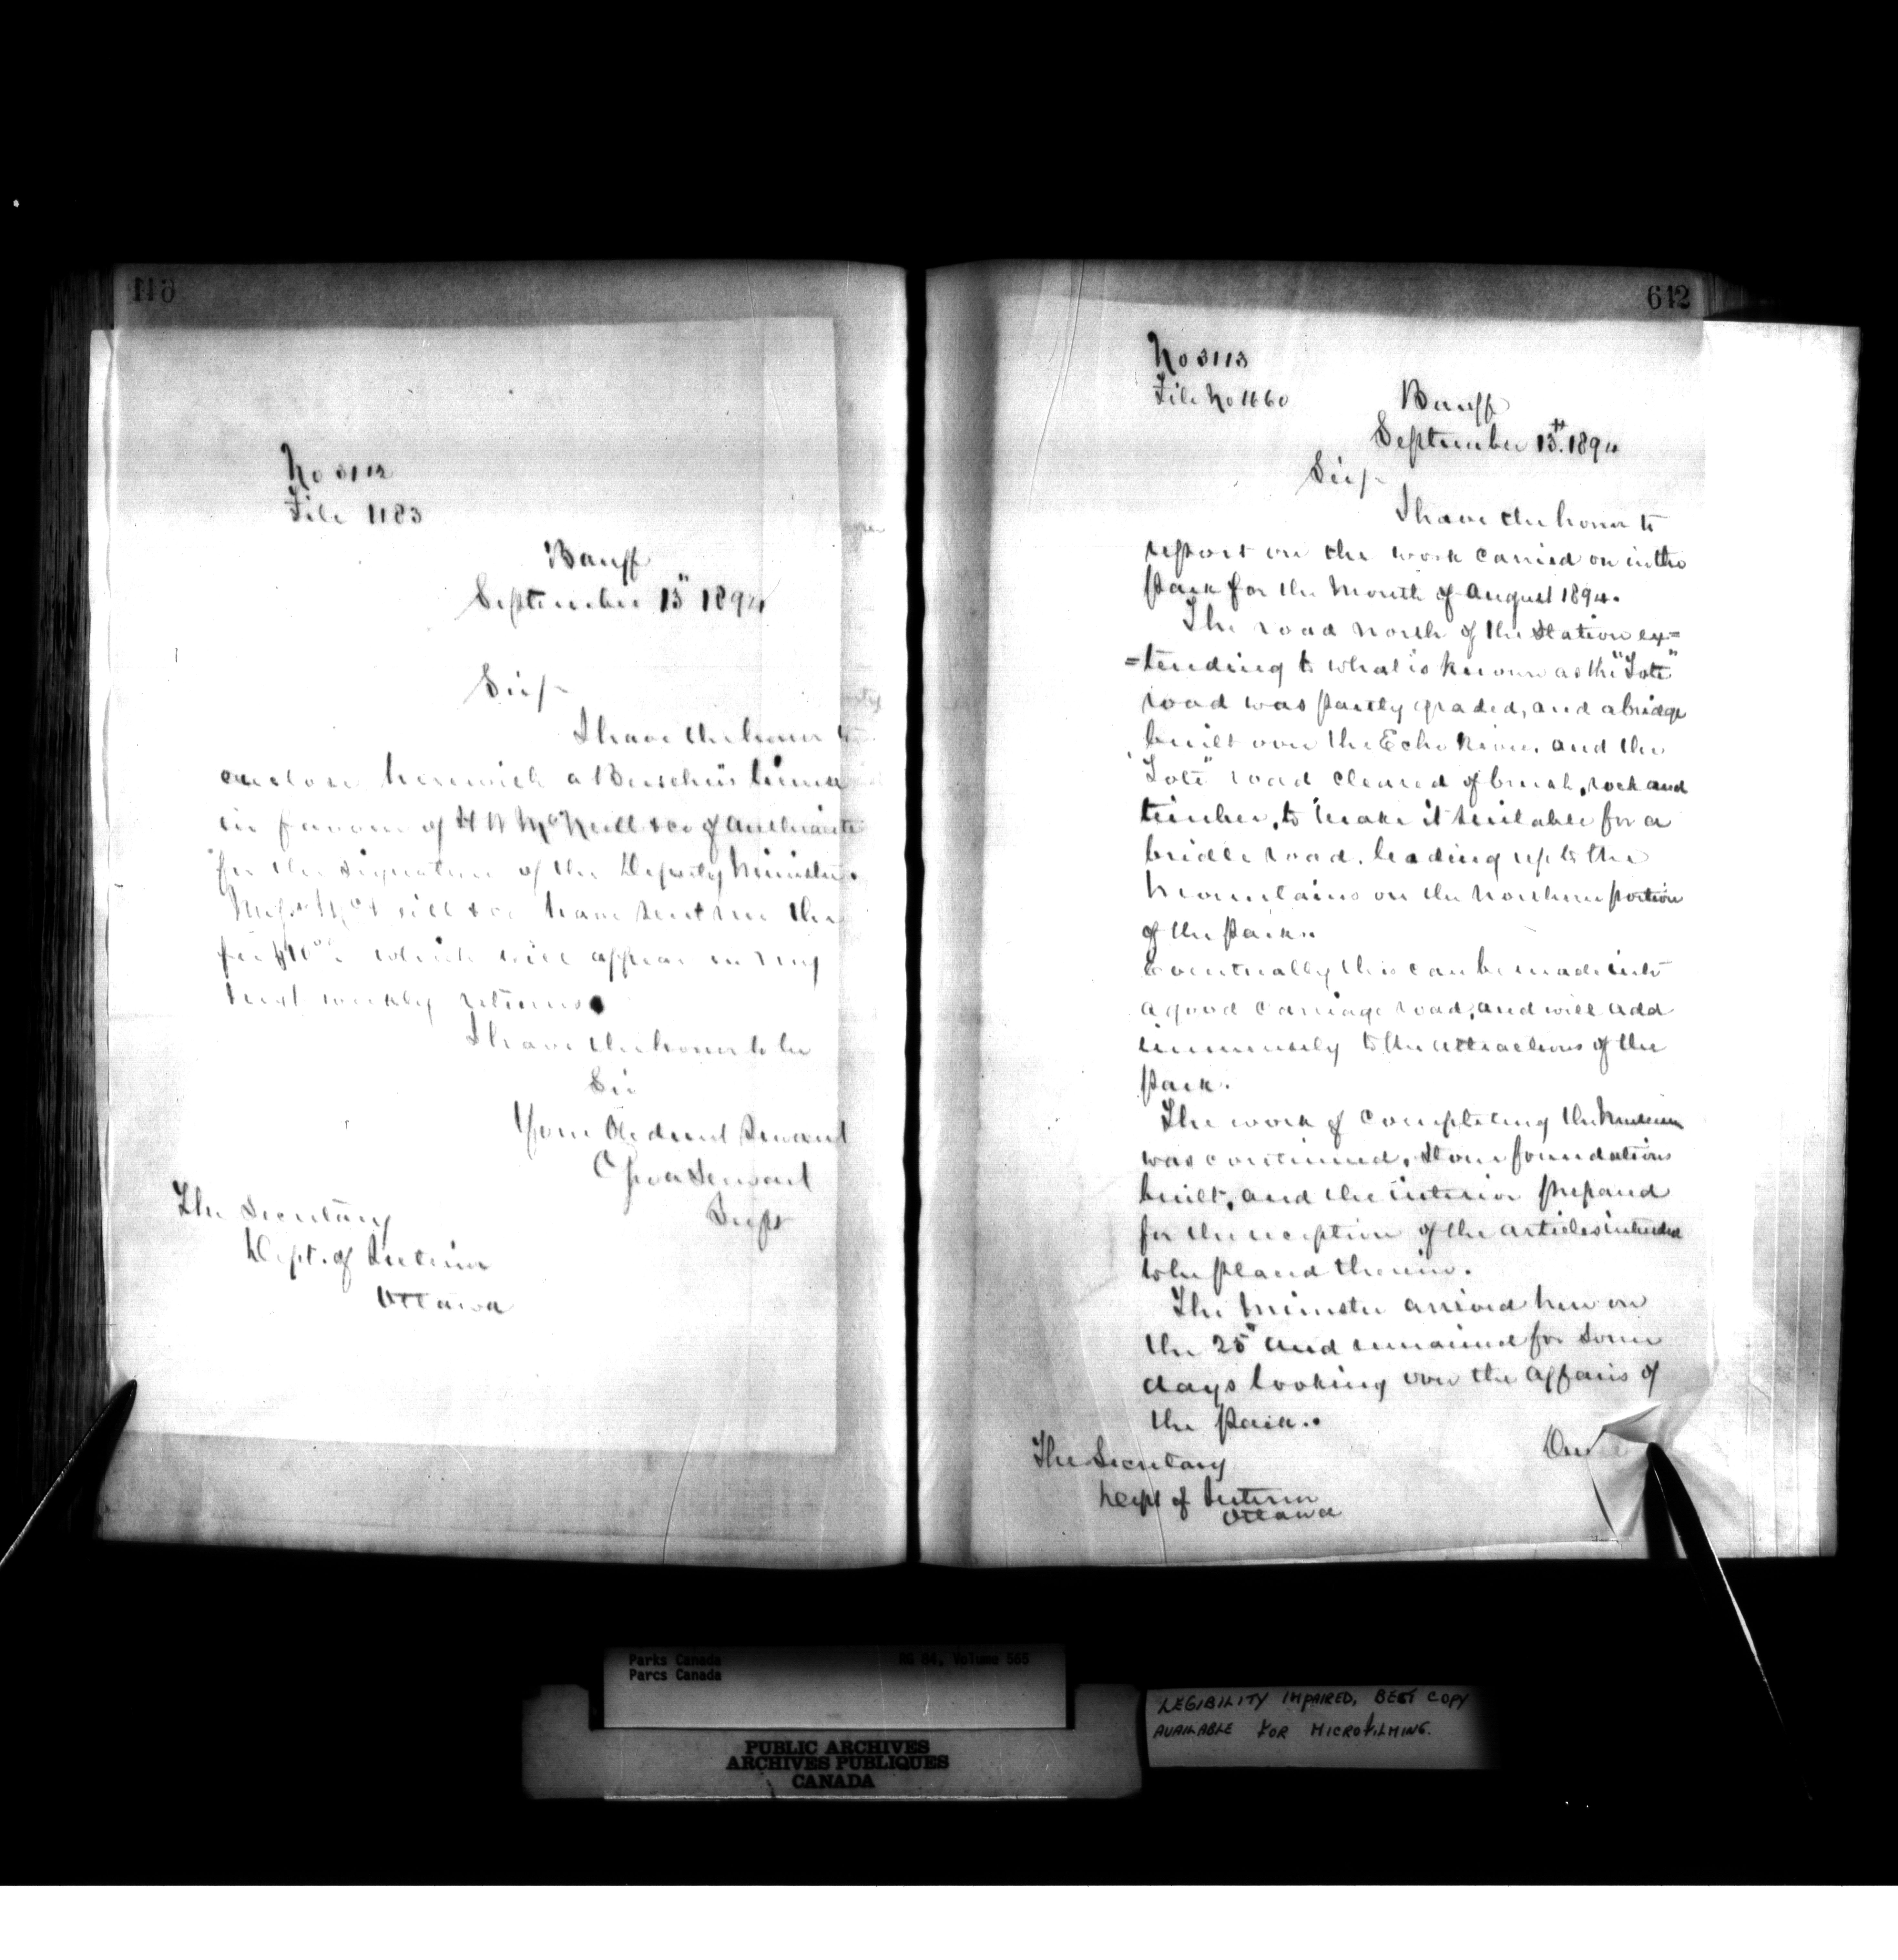 641
No 3112
File 1183
Banff
September 13" 1894
Sir/-
I have the honor to
enclose herewith a Butcher's license
in favour of H W McNeill & co of Anthracite
for the signature of the Deputy Minister.
McNeill & co have sent me the
fee $10 which will appear in my
next weekly returns.
I have the honor to be
Sir
Your Obedient Servant
Supt
The Secretary
Dept. of Interior
Ottawa
642
No 3113
File No 1660
Banff
September 13th. 1894
Sir/-
I have the honor to
report on the work carried on in the
Park for the Month of August 1894.
The road north of the Station ex=
=tending to what is known as the "Tote"
road was partly graded, and a bridge
built over the Echo River, and the
"Tote" road cleared of brush, rock and
timber, to make it suitable for a
bridle road, leading up to the
Mountains on the Northern portion
of the Park.
Eventually this can be made into
a good carriage road, and will add
immensely to the attractions of the
Park.
The work of completing the Museum
was continued, stone foundations
built, and the interior prepared
for the reception of the articles intended
to be placed therein.
The Minister arrived here on
the 25" and remained for some
days looking over the affairs of
the Park.
The Secretary
Dept of Interior
Ottawa
Parks Canada RG 84, Volume 565
Parcs Canada
PUBLIC ARCHIVES
ARCHIVES PUBLIQUES
CANADA
LEGIBILITY IMPAIRED, BEST COPY
AVAILABLE FOR MICROFILMING.